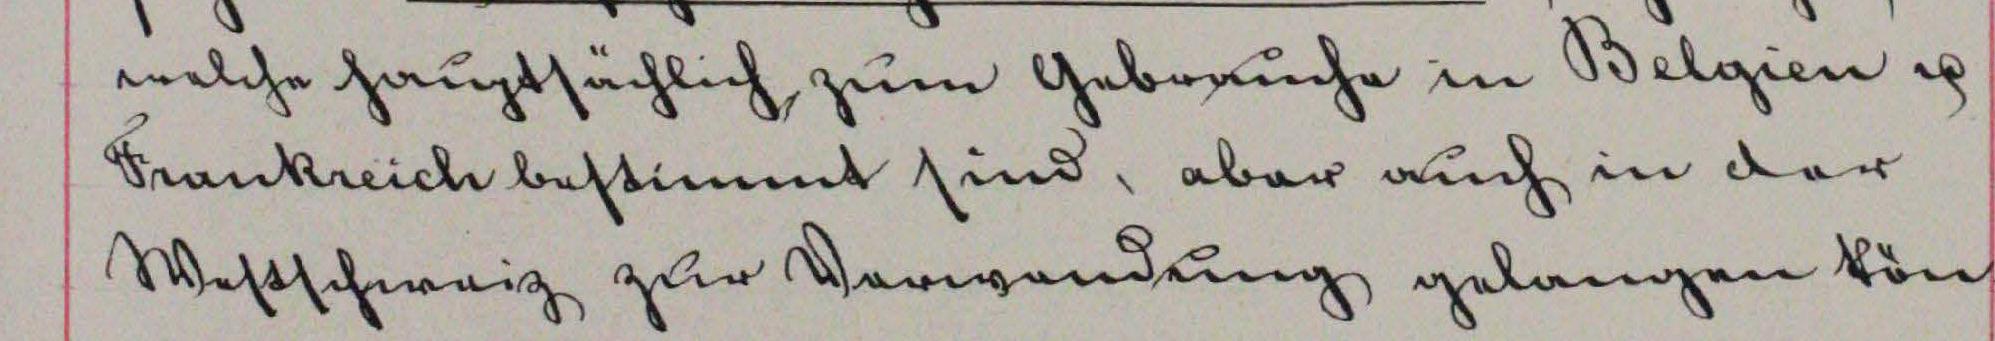 welche hauptsächlich zum Gebrauche in Belgien &
Frankreich bestimmt sind, aber auch in der
Westschweiz zur Verwendung gelangen kön